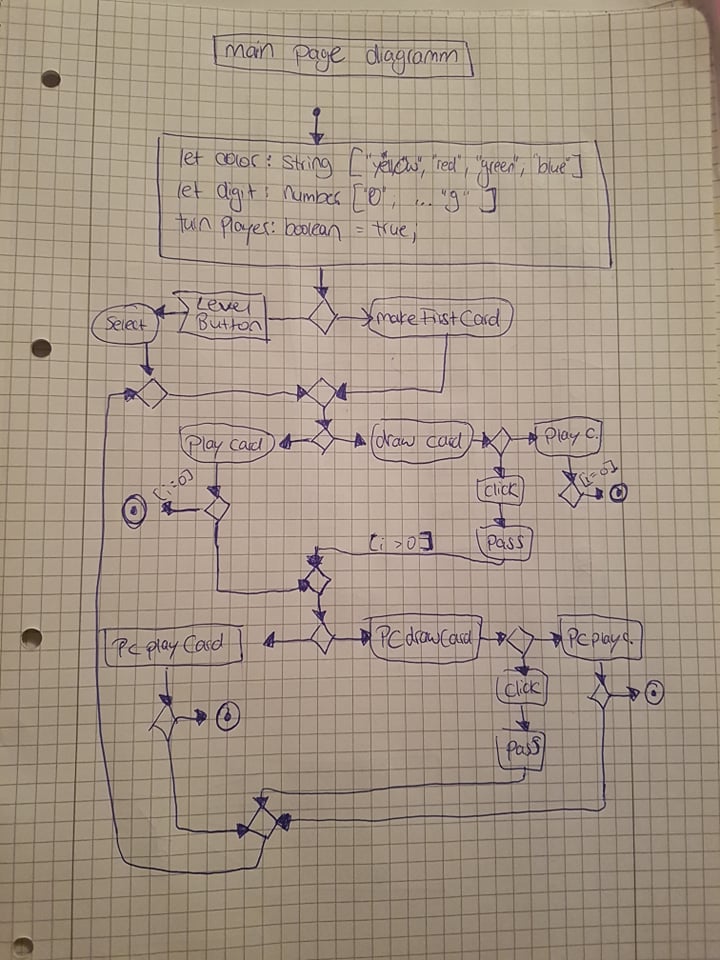 main page diagramm
let color: string ["yellow", "red", "green", "blue"]
let digit: number ["0", ... "9"]
turn Player: boolean = true;
Level
Button
Select
makeFirstCard
Play Card
draw card
Play C.
[i=0]
[i=0]
Click
[i>0]
Pass
PC play Card
PC drawCard
PC play C.
Click
Pass